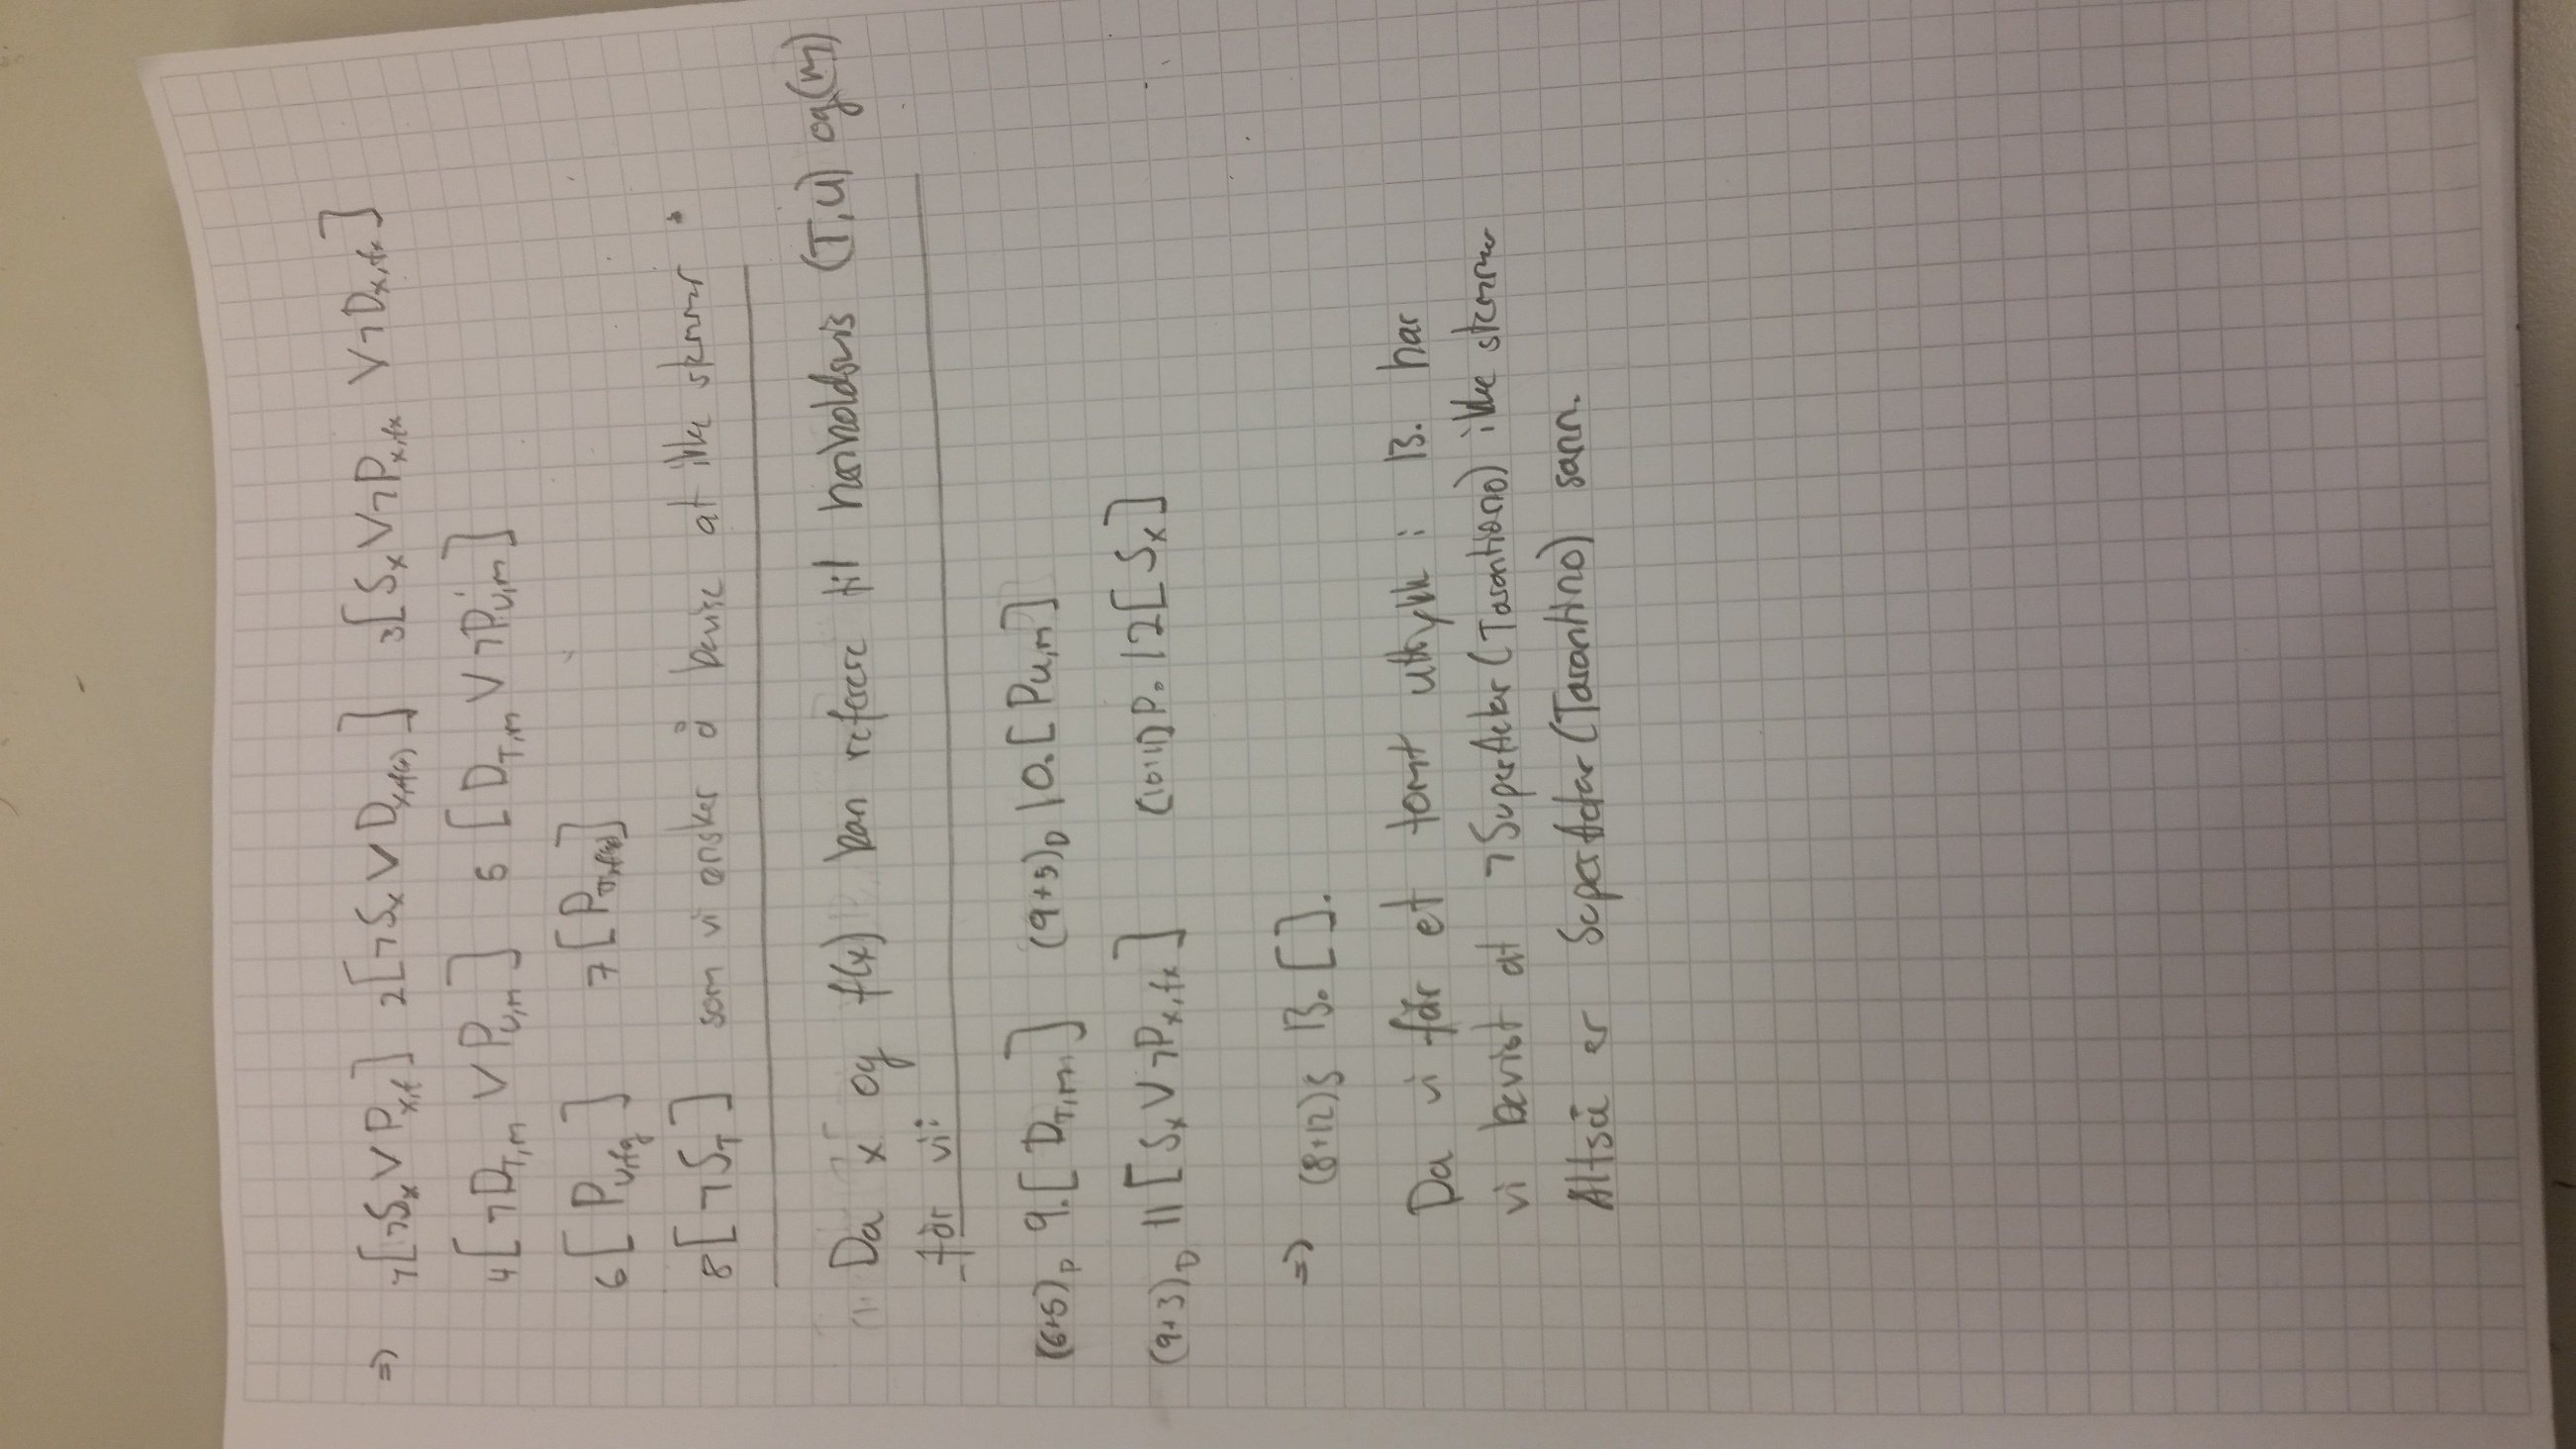 => 1[¬Sx V Px,f] 2[¬Sx V Dx,f(x)] 3[Sx V ¬Px,fx V ¬Dx,fx]
4[¬DT,m V Pu,m] 5 [DT,m V ¬Pu,m]
6[Pu,fg] 7[]
8[¬ST] som vi ønsker å bevise at ikke stemmer.
Da x og f(x) kan referere til henholdsvis (T,u) og(m)
får vi:
(6+5)P 9.[DT,m] (9+5)D 10.[Pu,m]
(9+3)D 11[Sx V ¬Px,fx] (10,11)P. 12[Sx]
=> (8+12)S 13.[].
Da vi får et tomt uttrykk i 13. har
vi bevist at ¬SuperActor(Tarantino) ikke stemmer
Altså er SuperActor(Tarantino) sann.